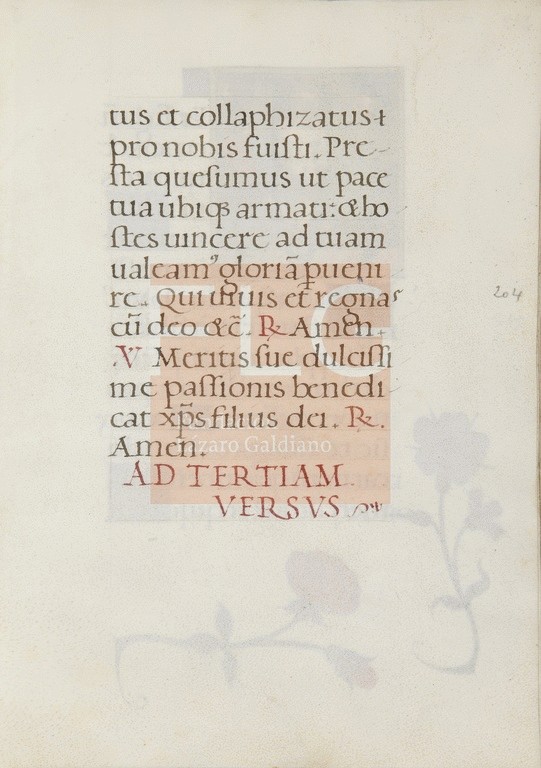 tus et collaphizatus ⁊
pro nobis fuisti. Pre-
sta quesumus ut pace
tua ubiqꝫ armati: & ho
stes uincere ad tuam
ualeamꝰ gloriã pueni
re. Qui uiuis et regnas
cũ deo &c̃. ℞ Amen.
V Meritis sue dulcissi
me passionis benedi
cat xp̃s filius dei. ℞.
Amen.
AD TERTIAM
VERSUS
204
FLG
Lázaro Galdiano